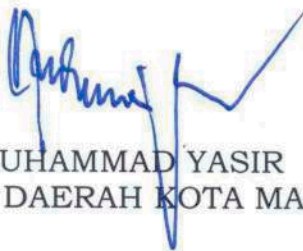 UHAMMAD YASIR
DAERAH KOTA MA